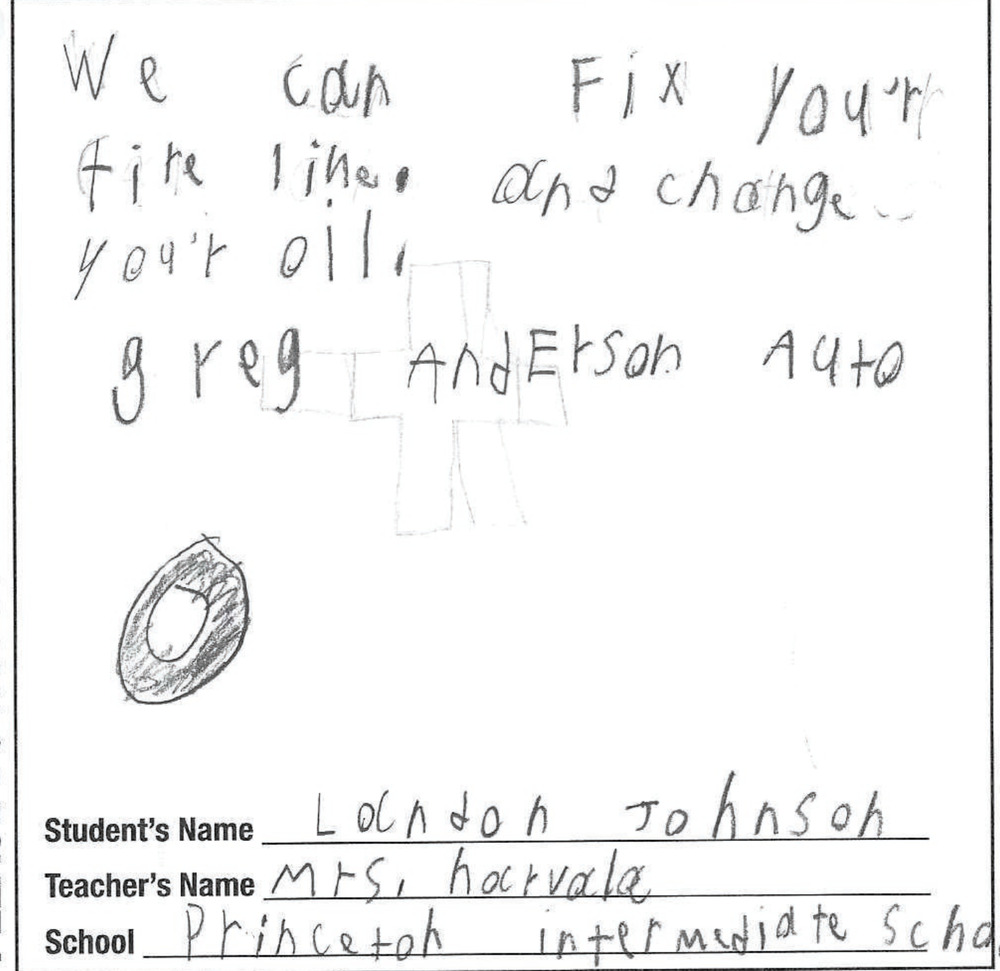 We can Fix you'r
tire line. and change
you'r oil.
greg AndErson Auto
Student's Name Landon Johnson
Teacher's Name Mrs. harvala
School Princeton intermediate Scho